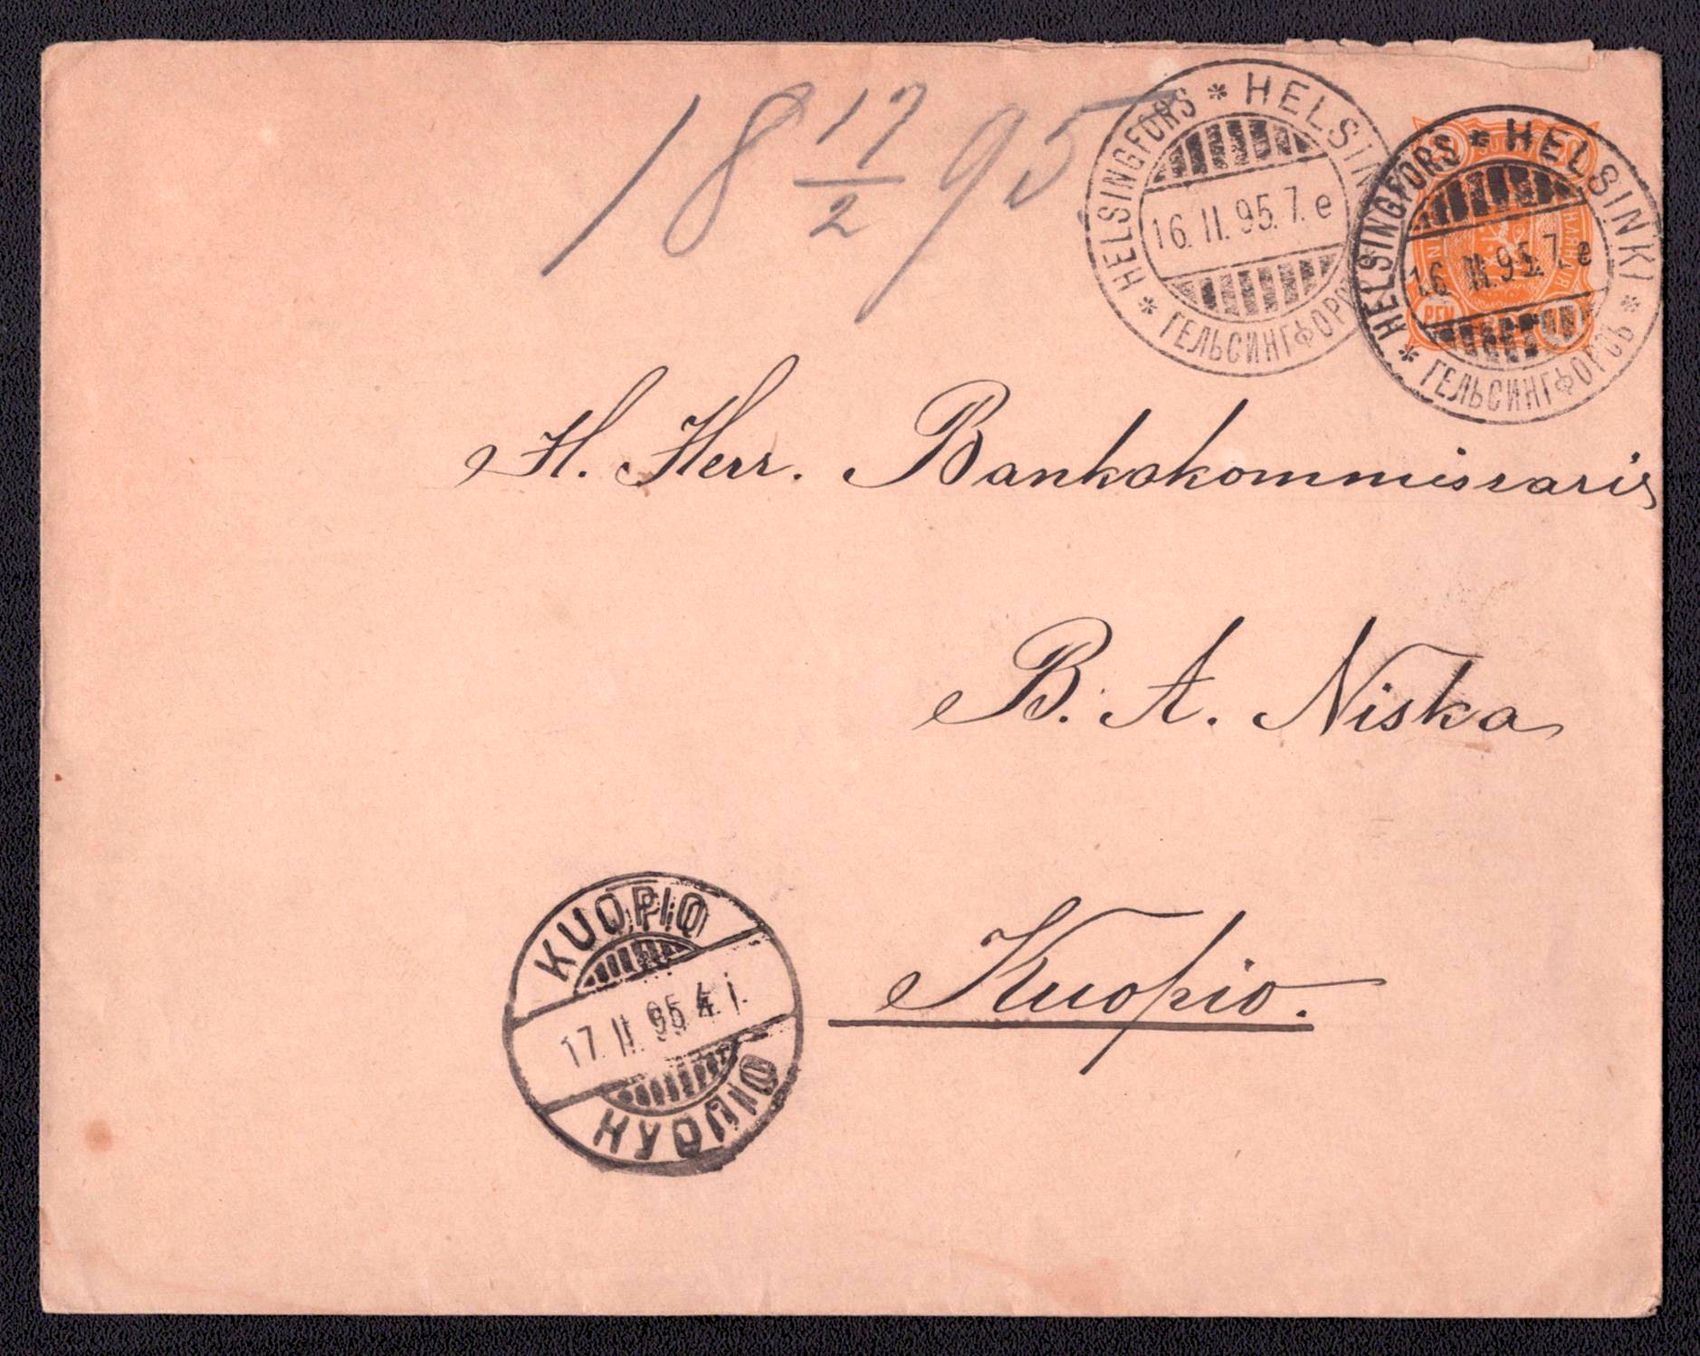 18 17/2 95.
* HELSINKI * ГЕЛЬСИНГФОРСЪ * HELSINGFORS
16. II. 95. 7. e
* HELSINKI * ГЕЛЬСИНГФОРСЪ * HELSINGFORS
16. II. 95. 7. e
PEN
H. Herr. Bankokommissaris
B. A. Niska
Kuopio.
KUOPIO
17. II. 95 4. i.
КУОПІО